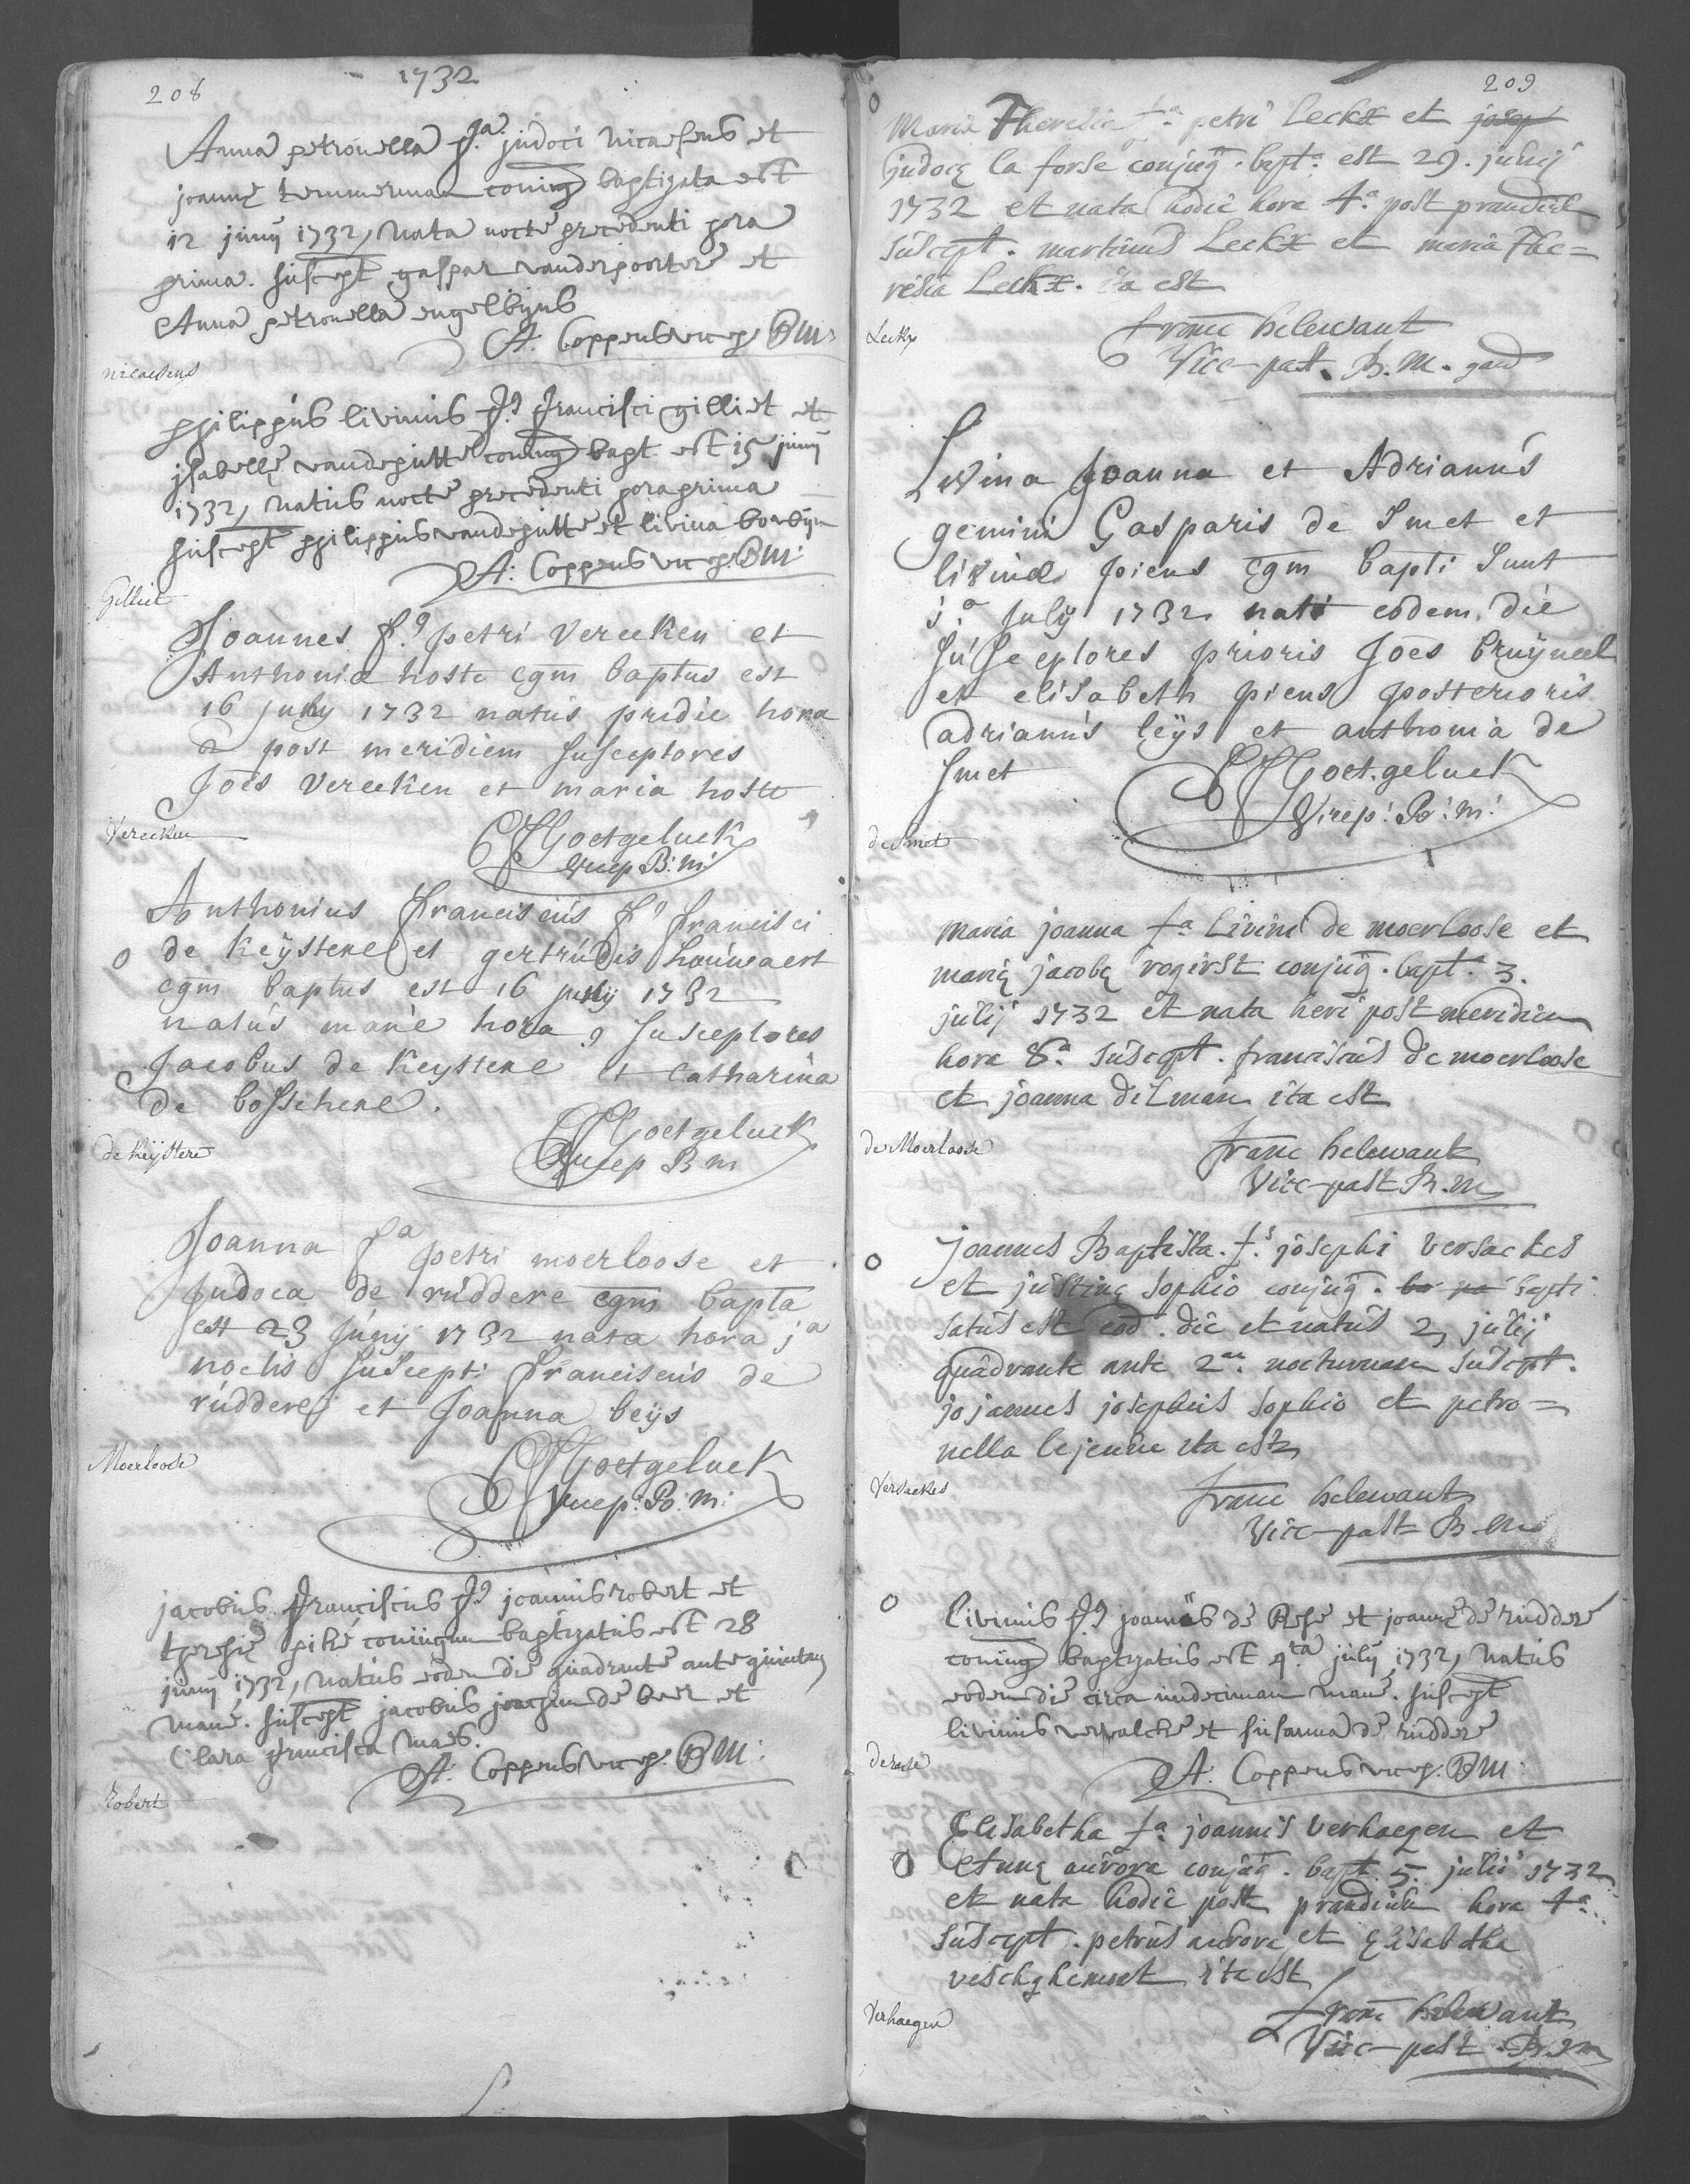 208
1732
Anna petronella f.a judoci nicaesens et
joannę temmerman coniug baptizata est
12 junij 1732, nata nocte precedenti hora
prima. suscept gaspar vanderpoorten et
Anna petronella engelbijns
A. Coppens vice p. BM:
nicaesens
philippus livinus f.s francisci gilliet et
jsabellę vandeputte coniug bapt est 15 junij
1732, natus nocte precedenti hora prima
suscept philippus vandeputte et livina
A: Coppens vice p. BM:
Gilliet
Joannes f.s petri Vereeken et
Anthonia hoste cgm baptus est
16 junij 1732 natus pridie hora
2 post meridiem Susceptores
Joës Vereeken et maria hoste
Goetgeluck
vicep B: m:
Vereeken
Anthonius franciscus f.s francisci
de keijstere et gertrudis houwaert
cgm baptus est 16 junij 1732
natus mane hora 9 Susceptores
Jacobus de keystere et Catharina
de bosschere.
Goetgeluck
vicep B m
de keijstere
Joanna fa petri moerloose et
Judoca de ruddere cgm bapta
est 23 Junij 1732 nata hora ja
noctis Suscepti franciscus de
ruddere et Joanna beys
Goetgeluck
vicep: B: m:
Moerloose
jacobus franciscus f.s joannis robert et
theresię piké coniugum baptizatus est 28
junij 1732, natus eodem die quadrante ante quintam
mane. suscept jacobus joachim de beer et
Clara francisca maes.
A. Coppens vice p. BM:
Robert
209
Maria Theresia f.a petri Leckx et josep
judocę la forse conjug. bapt: est 29. junij
1732 et nata hodie hora 4.a post prandium
suscept. martinus Leckx et maria The=
resia Leckx. ita est
franc helewaut
Vice-past. B. M. gand
Leckx
Livina Joanna et Adrianus
gemini Gasparis de Smet et
livinæ piens cgm bapti Sunt
j.a July 1732 nati eodem die
Susceptores prioris Joës bruyneel
et elisabeth piens posterioris
adrianus leys et anthonia de
Smet
Goetgeluck
Vicep: B: m:
de Smet
Maria joanna f.a Livini de moerloose et
marię jacobę rogierst conjug. bapt. 3.
julij 1732 et nata heri post meridiem
hora 8.a suscept. franciscus de moerloose
et joanna dilman ita est
franc helewaut
Vice-past B.M
de Moerloose
joannes Baptista. f.s josephi versackes
et justinę sophio conjug. ba na bapti
satus est eod. die et natus 2 julij
quadrante ante 2.am nocturnam suscept.
jojannes josephus sophio et petro=
nella lejeune ita est
franc helewaut
Vice-past B. M
Versackes
Livinus f.s joannis de Rese et joannę de ruddere
coniug baptizatus est 4ta july 1732, natus
eodem die circa undecimam mane. suscept
livinus vervalcke et susanna de ruddere
A. Coppens vice p. BM:
de rese
Elisabetha f.a joannis verhaegen et
Annę aurora conjug. bapt. 5. julii 1732
et nata hodie post prandium hora 4.a
suscept. petrus aurora et Elisabetha
ita est
franc helewaut
Vice-past. B. M
Verhaegen